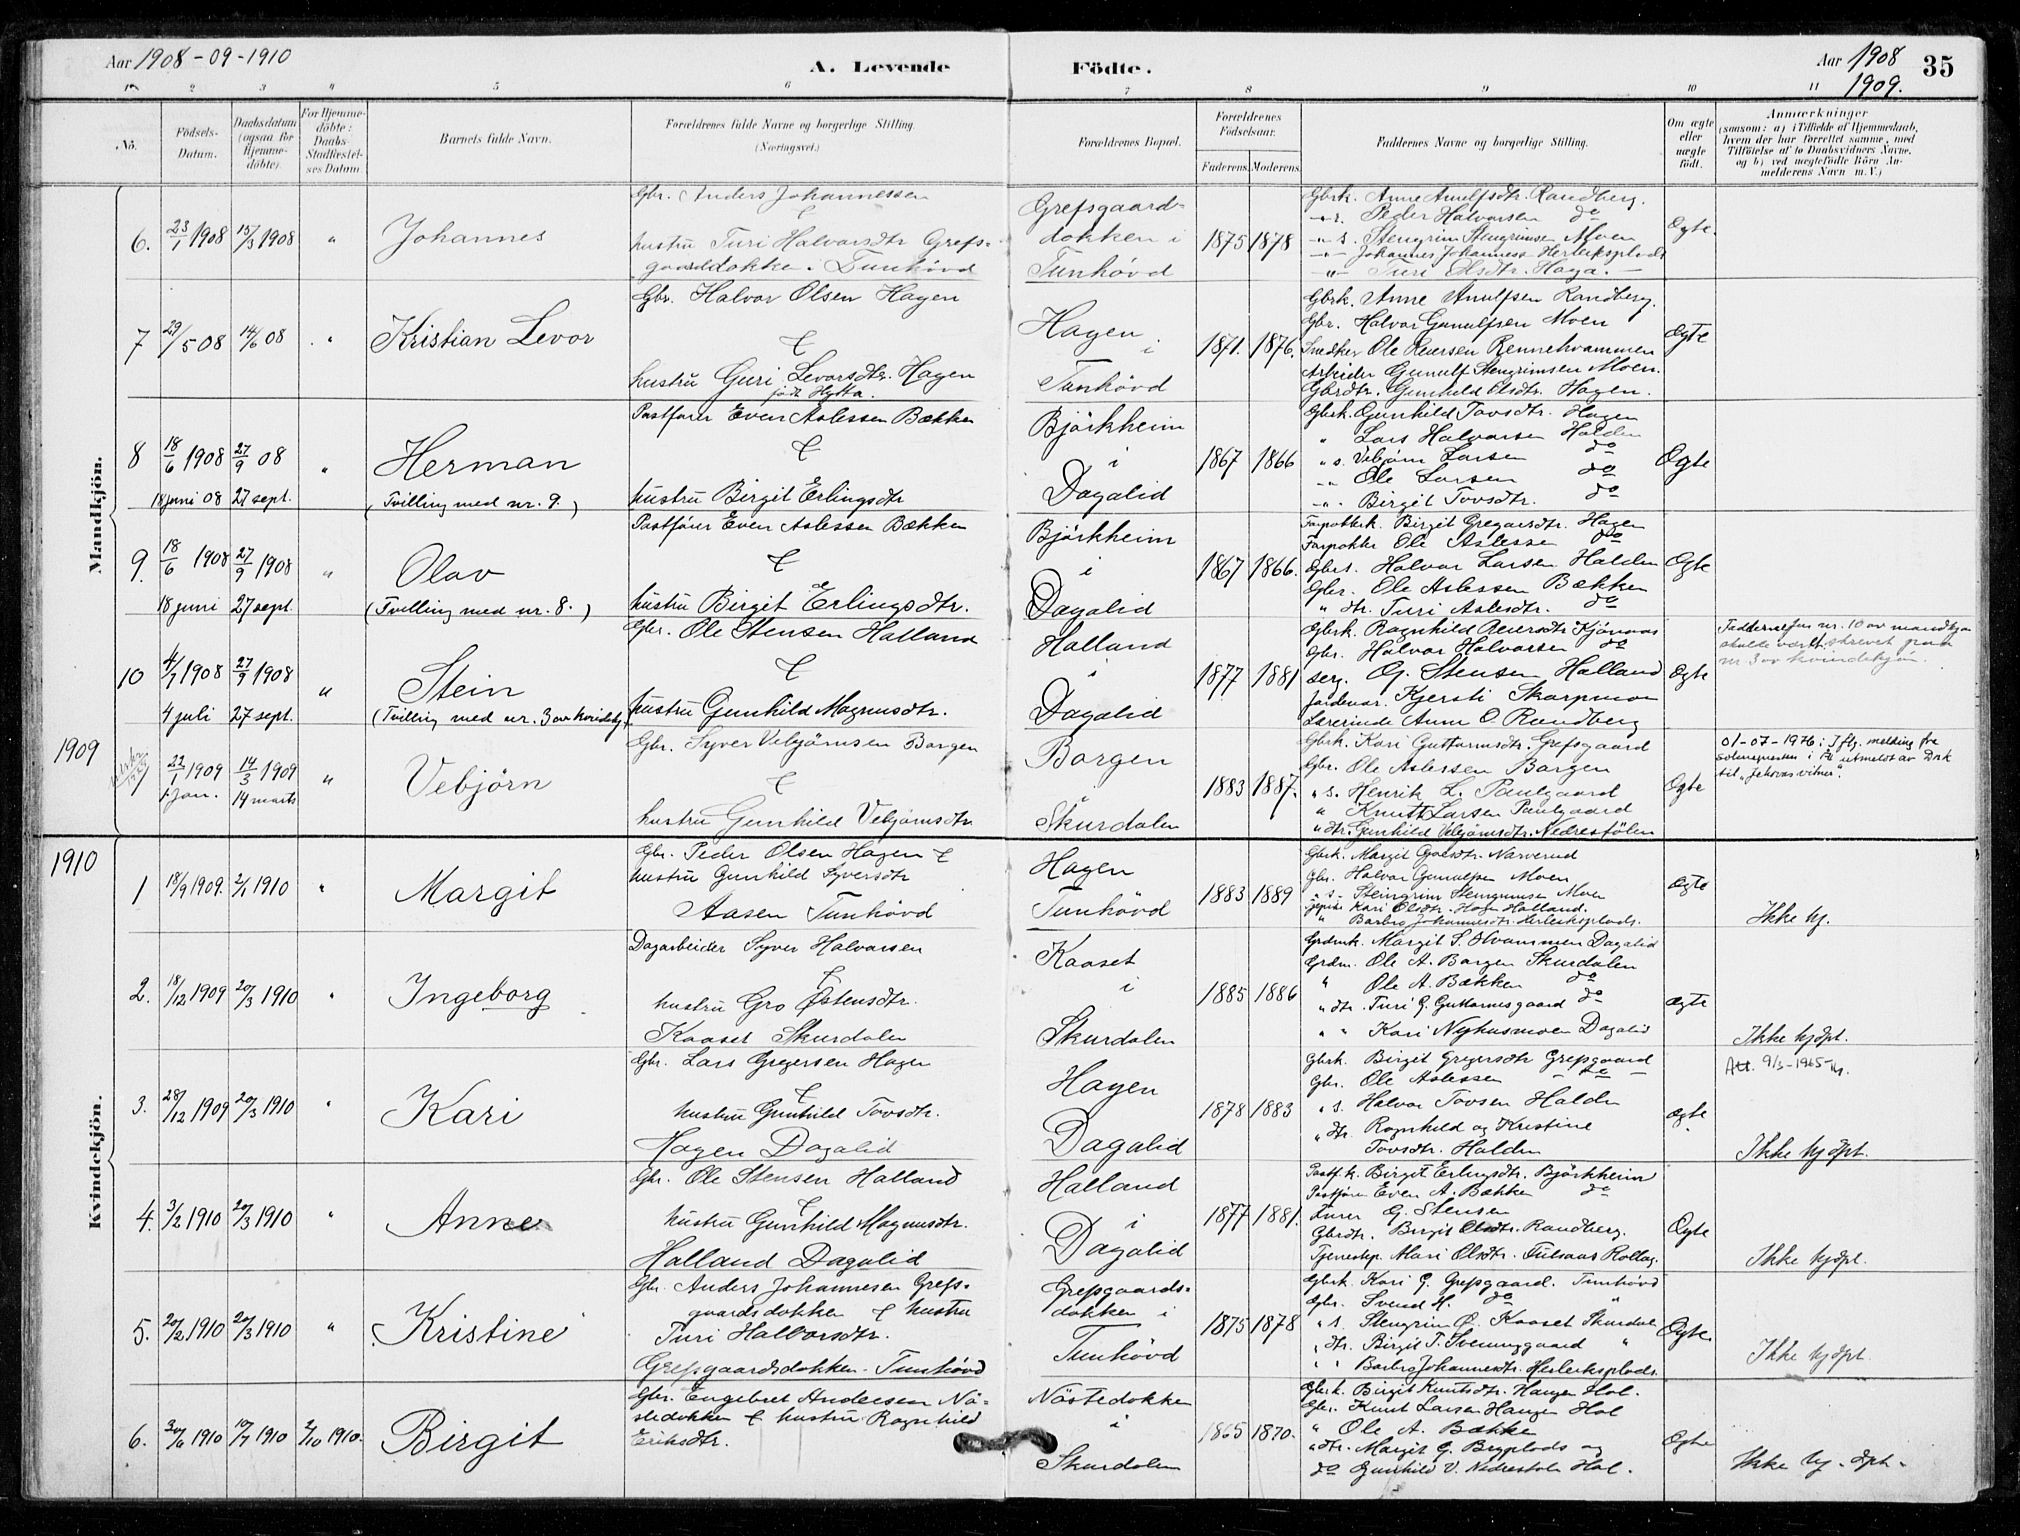 Aar 1908-09-1910
A. Levende
Födte.
Aar 1908
1909.
35
1 2 3 4 5 6 7 8 9 10 11
No.
Födsels-Datum.
Daabsdatum (ogsaa for Hjemme-döbte).
For Hjemme-döbte: Daabs-Stadfæstel-ses Datum.
Barnets fulde Navn.
Forældrenes fulde Navne og borgerlige Stilling.
(Næringsvei.)
Forældrenes Bopæl.
Forældrenes Födselsaar.
Faderens. Moderens.
Faddernes Navne og borgerlige Stilling.
Om ægte eller uægte födt.
Anmærkninger
(saasom: a) i Tilfælde af Hjemmedaab,
hvem der har forrettet samme, med
Tilföielse af to Daabsvidners Navne,
og b) ved uægtefödte Börn An-
melderens Navn m. V.)
Mandkjön.
6. 23/1 1908 15/3 1908 " Johannes
Gbr. Anders Johannessen
&
hustru Turi Halvorsdtr. Grefs-
gaarddokken i Tunhövd
Grefsgaard-
dokken i
Tunhövd
1875 1878
Gbrk. Anne Arnulfsdtr. Randberg.
-"- s. Peder Halvorsen do
-"- s. Stengrim Stengrimsen Moen
-"- Johannes Johannessen Herleiksplads
-"- Turi Olsdtr. Haga. -
Ægte.
7 29/5 08 14/6 08 " Kristian Levor
Gbr. Halvor Olsen Hagen
&
hustru Guri Levorsdtr. Hagen
födt Hytta.
Hagen
i
Tunhövd
1871. 1876.
Gbrk. Anne Arnulfsen Randberg.
Gbr. Halvor Gunulfsen Moen
Snedker Ole Reiersen Rennehvammen
Arbeider Gunulf Stengrimsen Moen.
Gbrdtr. Gunhild Olsdtr. Hagen.
Ægte
8 18/6 1908 27/9 08 " Herman
18 juni 08 27 sept. (Tvilling med nr. 9.)
Postförer Even Aslessen Bækken
&
hustru Birgit Erlingsdtr
Björkheim
i
Dagalid
1867 1866
Gbrk. Gunhild Tovsdtr. Hagen
" Lars Halvorsen Halden
" s. Vebjörn Larsen do
-"- Ole Larsen do
-"- Birgit Tovsdtr. do
Ægte
9. 18/6 1908 27/9 1908 " Olav
18 juni 27 sept. (Tvilling med nr. 8.)
Postförer Even Aslessen Bækken
&
hustru Birgit Erlingsdtr.
Björkheim
i
Dagalid
1867 1866.
Forpakterk. Birgit Gregarsdtr. Hagen
Forpakter Ole Aslessen do
Gbr s. Halvor Larsen Halden
Gbr. Ole Aslessen Bækken
" dtr. Turi Aslesdtr. do
Ægte
10 4/7 1908 27/9 1908 " Stein
4 juli 27 sept. (Tvilling med nr. 3 av kvindekj.)
Gbr. Ole Stensen Halland
&
hustru Gunhild Magnusdtr.
Halland
i
Dagalid
1877 1881
Gbrk. Ragnhild Reiersdtr Kjönaas
Gbr. Halvor Halvorsen do
serg. G. Stensen Halland
Jordmor. Kjersti Skarpmoen
Lærerinde Anne O. Randberg
Ægte
Faddernefor nr. 10 av mandkjön
skulde været skrevet paa
nr 3 av kvindekjön.
1909
22/1 1909 14/3 1909 " Vebjörn
Jan. 14 marts
Gbr. Syver Vebjörnsen Borgen
&
hustru Gunhild Vebjörnsdtr
Borgen
i
Skurdalen
1883 1887.
Gbrk. Kari Guttormsdtr. Grefsgaard
Gbr. Ole Aslessen Borgen
" s. Henrik L. Paulgaard
" Knutt Larsen Paulgaard
" dtr. Gunhild Vebjörnsdtr. Nedrestölen
Ægte
01-07-1976: I flg. melding fra
soknepresten i Ål utmeldt av Dnk
til "Jehovas vitner".
Kvindekjön.
1910
1 18/9 1909. 2/1 1910 " Margit
Gbr. Peder Olsen Hagen &
hustru Gunhild Syversdtr
Aasen Tunhövd
Hagen
Tunhövd
1883 1889
Gbrk. Margit Goesdtr. Narverud
Gbr. Halvor Gunulfsen Moen
" s. Steingrim Stengrimsen Moen
pepike Kari Olsdtr. Hagen Halland.
" Barbro Johannesdtr. Herleiksplads.
Ægte
Ikke kj.
2. 18/12 1909 20/3 1910 " Ingeborg
Dagarbeider Syver Halvorsen
&
hustru Gro Østensdtr.
Kaaset Skurdalen
Kaaset
i
Skurdalen
1885 1886
Grdmk. Margit S. Hvammen Dagalid
Grdm. Ole A. Borgen Skurdalen
" Ole A. Bækken do
" dtr. Turi G. Guttormsgaard do
" " Kari Nyhusmoen Dagalid
ægte
Ikke kjöpt.
3. 28/12 1909 20/3 1910 " Kari
Gbr. Lars Gregersen Hagen
&
hustru Gunhild Tovsdtr.
Hagen Dagalid
Hagen
Dagalid
1878 1883
Gbrk. Birgit Gregersdtr Grefsgaard
Gbr. Ole Aslessen - do -
" s. Halvor Tovsen Halden
" dtr. Ragnhild og Kristine
Tovsdtr. Halden
ægte
Att. 9/3-1965
Ikke kjöpt.
4. 3/2 1910 20/3 1910 " Anne
Gbr. Ole Stensen Halland
&
hustru Gunhild Magnusdtr.
Halland Dagalid
Halland
i
Dagalid
1877 1881.
Postf.k. Birgit Erlingsdtr. Björkheim
Postförer Even A. Bækken do
Furer G. Stensen
Gbrdtr. Birgit Olsdtr. Randberg.
Tjenestep. Mari Olsdtr. Fulsaas Rollag.
Ægte
Ikke kjöpt.
5. 20/2 1910 20/3 1910 " Kristine
Gbr. Anders Johannesen Grefs-
gaardsdokken & hustru
Turi Halvorsdtr.
Grefsgaardsdokken - Tunhövd
Grefsgaards-
dokken i
Tunhövd
1875 1878
Gbrk. Kari G. Grefsgaard. Tunhövd
Gbr. Svend H. do "
" s. Stengrim Ø. Kaaset Skurdal
" dtr. Birgit T. Svenunggaard "
" " Barbro Johannesdtr. Herleiksplads.
Ægte.
Ikke kjöpt.
6. 20/6 1910 10/7 1910 2/10 1910. Birgit
Gbr. Engebret Andersen Nö-
stedokken & hustru Ragnhild
Eriksdtr.
Nöstedokken
i
Skurdalen
1865 1870.
Gbrk. Birgit Knutsdtr. Haugen Hol.
Gbr. Knut Larsen Haugen Hol
" Ole A. Bække
" dtr. Margit G. Bryplads og
do Gunhild V. Nedrestölen Hol.
Ægte
Ikke kj. öpt.